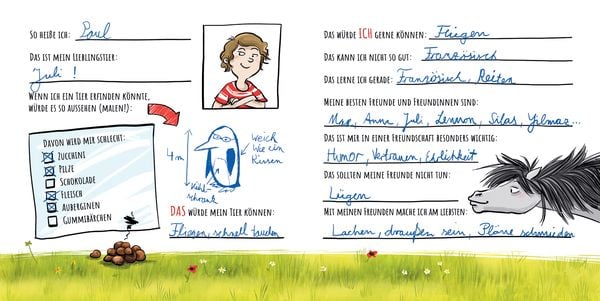 So heiße ich: Paul
Das ist mein Lieblingstier:
Juli !
Wenn ich ein Tier erfinden könnte,
würde es so aussehen (malen!):
Davon wird mir schlecht:
Zucchini
Pilze
Schokolade
Fleisch
Auberginen
Gummibärchen
4 m
weich
wie ein
Kissen
Kühl-
schrank
DAS würde mein Tier können:
Fliegen, schnell
Das würde ICH gerne können: Fliegen
Das kann ich nicht so gut: Französisch
Das lerne ich gerade: Französisch, Reiten
Meine besten Freunde und Freundinnen sind:
Max, Anna, Juli, Lennon, Silas, Yilmaz...
Das ist mir in einer Freundschaft besonders wichtig:
Humor, Vertrauen, Ehrlichkeit
Das sollten meine Freunde nicht tun:
Lügen
Mit meinen Freunden mache ich am liebsten:
Lachen, draußen sein, Pläne schmieden